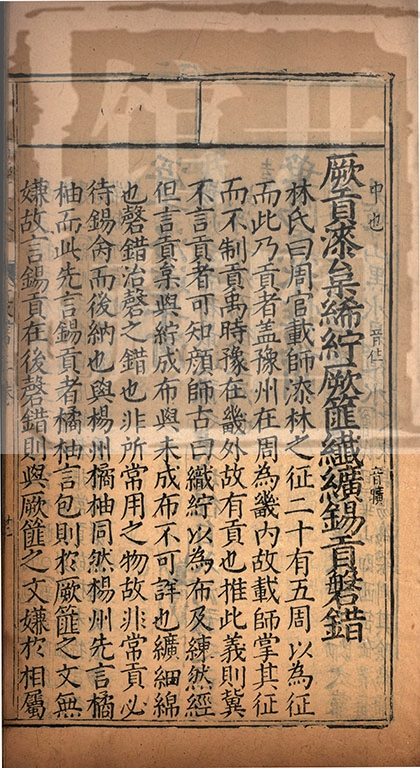 中也
厥貢漆枲絺紵厥篚纖纊錫貢磬錯
音佇
音曠
林氏曰周官載師漆林之征二十有五周以為征
而此乃貢者盖豫州在周為畿內故載師掌其征
而不制貢禹時豫在畿外故有貢也推此義則冀
不言貢者可知顔師古曰織紵以為布及練然經
但言貢枲與紵成布與未成布不可詳也纊細綿
也磬錯治磬之錯也非所常用之物故非常貢必
待錫命而後納也與楊州橘柚同然楊州先言橘
柚而此先言錫貢者橘柚言包則於厥篚之文無
嫌故言錫貢在後磬錯則與厥篚之文嫌於相屬